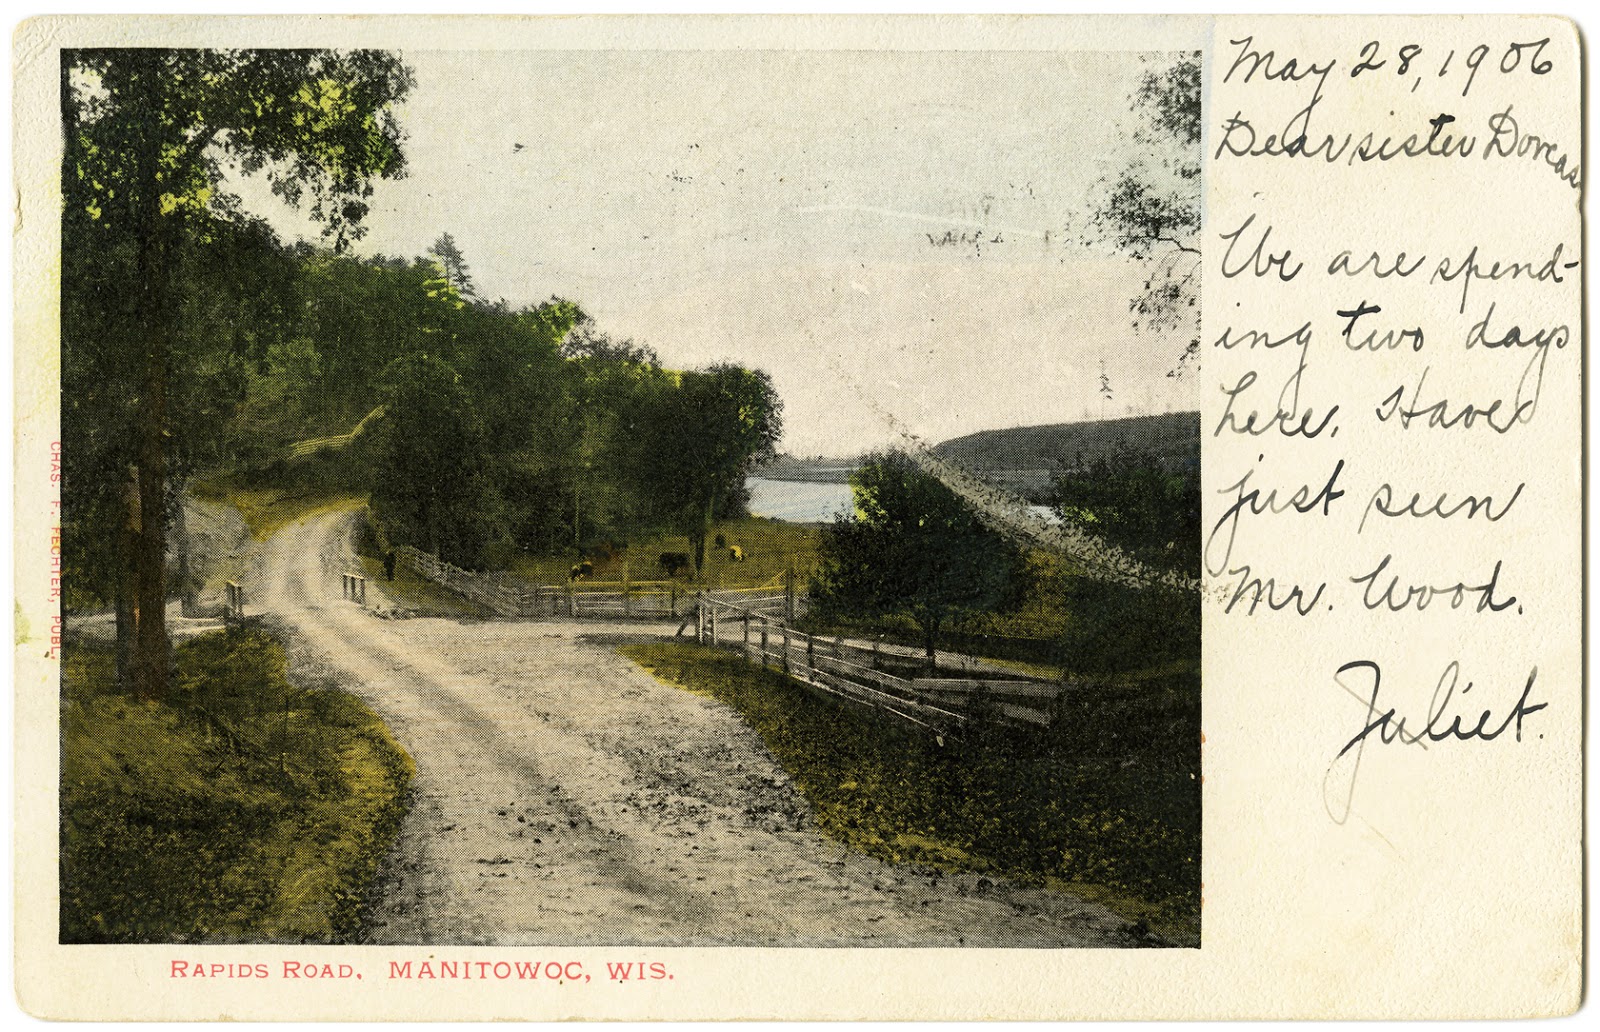 May 28, 1906
Dear sister Dorcas
We are spend-
ing two days
here. Have
just seen
Mr. Wood.
Juliet.
CHAS. F. FECHTER, PUBL.
RAPIDS ROAD, MANITOWOC, WIS.